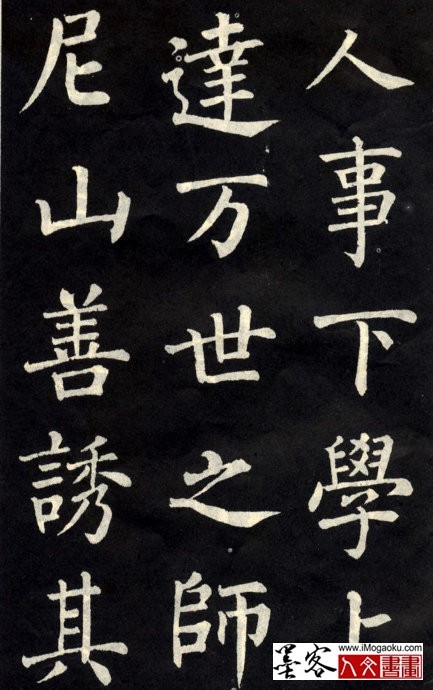 人事下學上
達万世之師
尼山善誘其
墨客
www.iMogaoku.com
人文書畫